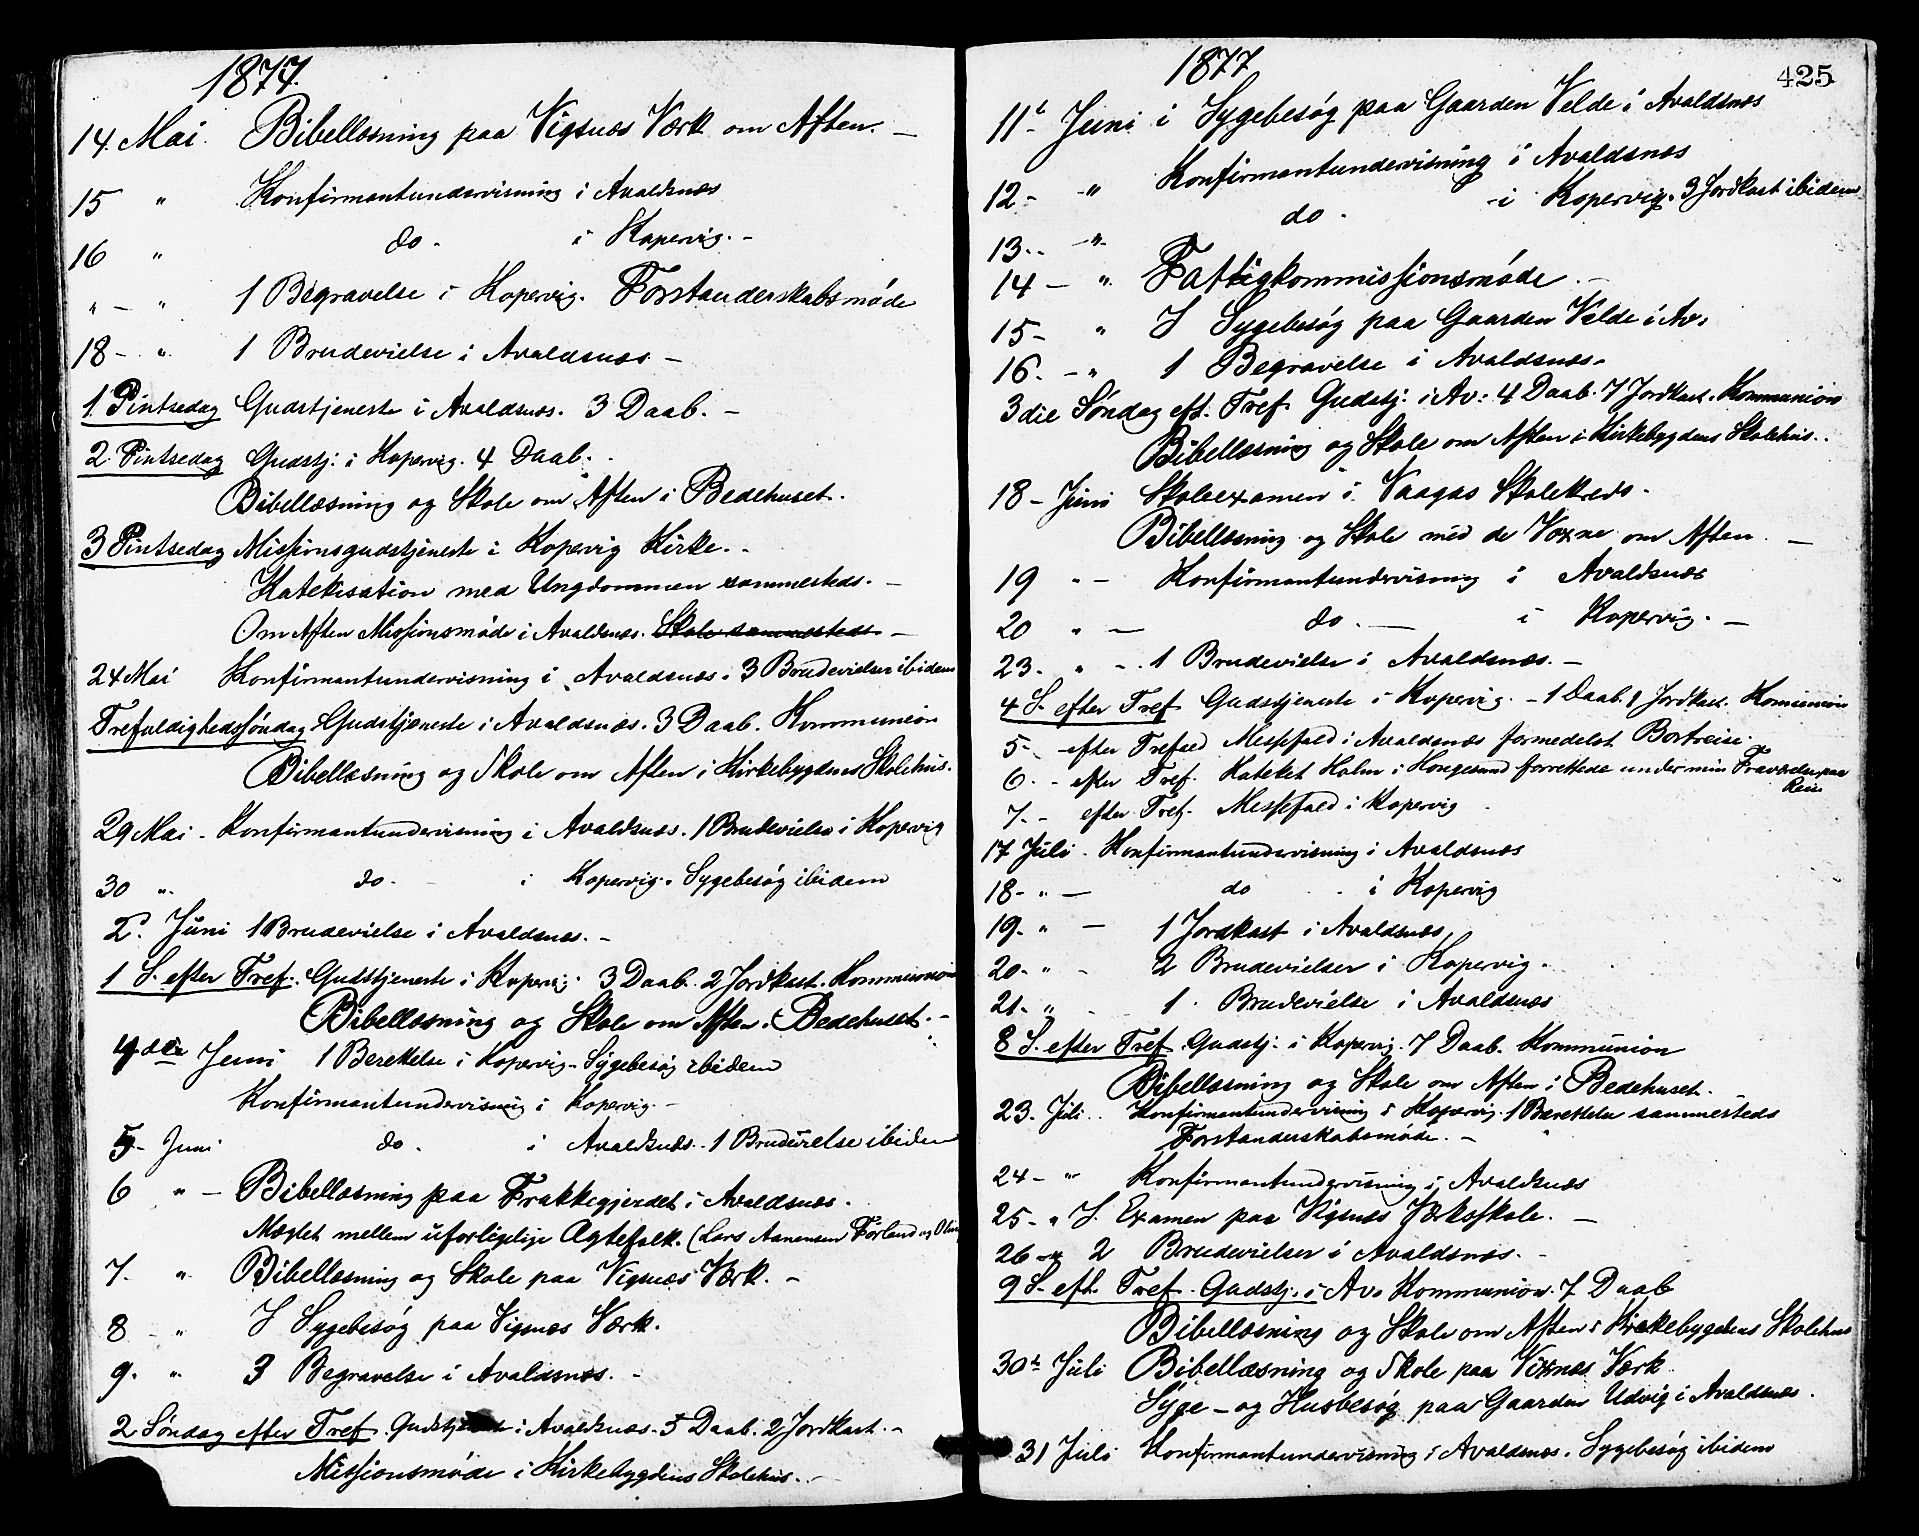 1877.
14. Mai. Bibellæsning paa Vigsnæs Værk om Aften. –
15 " Konfirmantundervisning i Avaldsnæs
16 " do. i Kopervig. –
" – " 1 Begravelse i Kopervig. Forstanderskabsmøde
18 – " 1 Brudevielse i Avaldsnæs –
1. Pintsedag Gudstjeneste i Avaldsnæs. 3 Daab. –
2. Pintsedag Gudstj. i Kopervig. 4 Daab. .
Bibellæsning og Skole om Aften i Bedehuset.
3 Pintsedag Missionsgudstjeneste i Kopervig Kirke. .
Katekisation med Ungdommen sammesteds. –
Om Aften Missionsmøde i Avaldsnæs. Skole sammesteds –
24 Mai Konfirmantundervisning i Avaldsnæs. 3 Brudevielser ibidem
Trefoldighedssøndag Gudstjeneste i Avaldsnæs. 3 Daab. Kommunion
Bibellæsning og Skole om Aften i Kirkebygdens Skolehus.
29 Mai – Konfirmantundervisning i Avaldsnæs. 1 Brudevielse i Kopervig
30 " do. – i Kopervig. Sygebesøg ibidem
2. Juni 1 Brudevielse i Avaldsnæs. –
1 S. efter Tref. Gudstjeneste i Kopervig. 3 Daab. 2 Jordkast. Kommunion
Bibellæsning og Skole om Aften i Bedehuset. –
4de Juni 1 Berettelse i Kopervig – Sygebesøg ibidem
Konfirmantundervisning i Kopervig. –
5 – Juni do. i Avaldsnæs. 1 Brudevielse ibidem
6 " – Bibellæsning paa Frakkegjerdet i Avaldsnæs.
Mæglet mellem uforligelige Ægtefolk. (Lars Aanensen Førland og
7. " Bibellæsning og Skole paa Vigsnæs Værk. –
8 – " I Sygebesøg paa Vigsnæs Værk.
9. " 3 Begravelse i Avaldsnæs. –
2 Søndag efter Tref. Gudstjeneste i Avaldsnæs. 5 Daab. 2 Jordkast. –
Missionsmøde i Kirkebygdens Skolehus. –
1877
425
11t Juni i Sygebesøg paa Gaarden Velde i Avaldsnæs
12 – " Konfirmantundervisning i Avaldsnæs
13. – " do. – i Kopervig. 3 Jordkast ibidem
14 – " Fattigkommissionsmøde. –
15 – " I Sygebesøg paa Gaarden Velde i Av:
16. – " 1 Begravelse i Avaldsnæs.
3die Søndag eft. Tref. Gudstj. i Av: 4 Daab. 7 Jordkast. Kommunion
Bibellæsning og Skole om Aften i Kirkebygdens Skolehus. .
18 – Juni Skoleexamen i Vaagas Skolekreds.
Bibellæsning og Skole med de Voxne om Aften. –
19 " – Konfirmantundervisning i Avaldsnæs
20 " – do. – i Kopervig. –
23. " – 1 Brudevielse i Avaldsnæs. –
4 S. efter Tref. Gudstjeneste i Kopervig. – 1 Daab. 8 Jordkast. Komunion
5 – efter Trefold Messefald i Avaldsnæs formedelst Bortreise.
6. – efter Tref. Kateket Holm i Haugesund forrettede under min Fraværelse paa
Reise
7. – efter Tref. Messefald i Kopervig
17 Juli. Konfirmantundervisning i Avaldsnæs
18 – " – do . i Kopervig
19. " – 1 Jordkast i Avaldsnæs
20 – " – 2 Brudevielser i Kopervig.
21. " . 1. Brudevielse i Avaldsnæs
8 S. efter Tref. Gudstj. i Kopervig. 7 Daab. Kommunion
Bibellæsning og Skole om Aften i Bedehuset.
23. Juli . Konfirmantundervisning i Kopervig. 1 Berettelse sammesteds
Forstanderskabsmøde. –
24 – " Konfirmantundervisning i Avaldsnæs
25 – " I. Examen paa Vigsnæs Værksskole. –
26 – " 2 Brudevielser i Avaldsnæs. –
9 S. eft. Tref. Gudstj. i Av: Kommunion. 7 Daab
Bibellæsning og Skole om Aften i Kirkebygdens Skolehus
30t Juli Bibellæsning og Skole paa Vixnæs Værk.
Syge – og Husbesøg paa Gaarden Udvig i Avaldsnæs.
31 Juli Konfirmantundervisning i Avaldsnæs. Sygebesøg ibidem